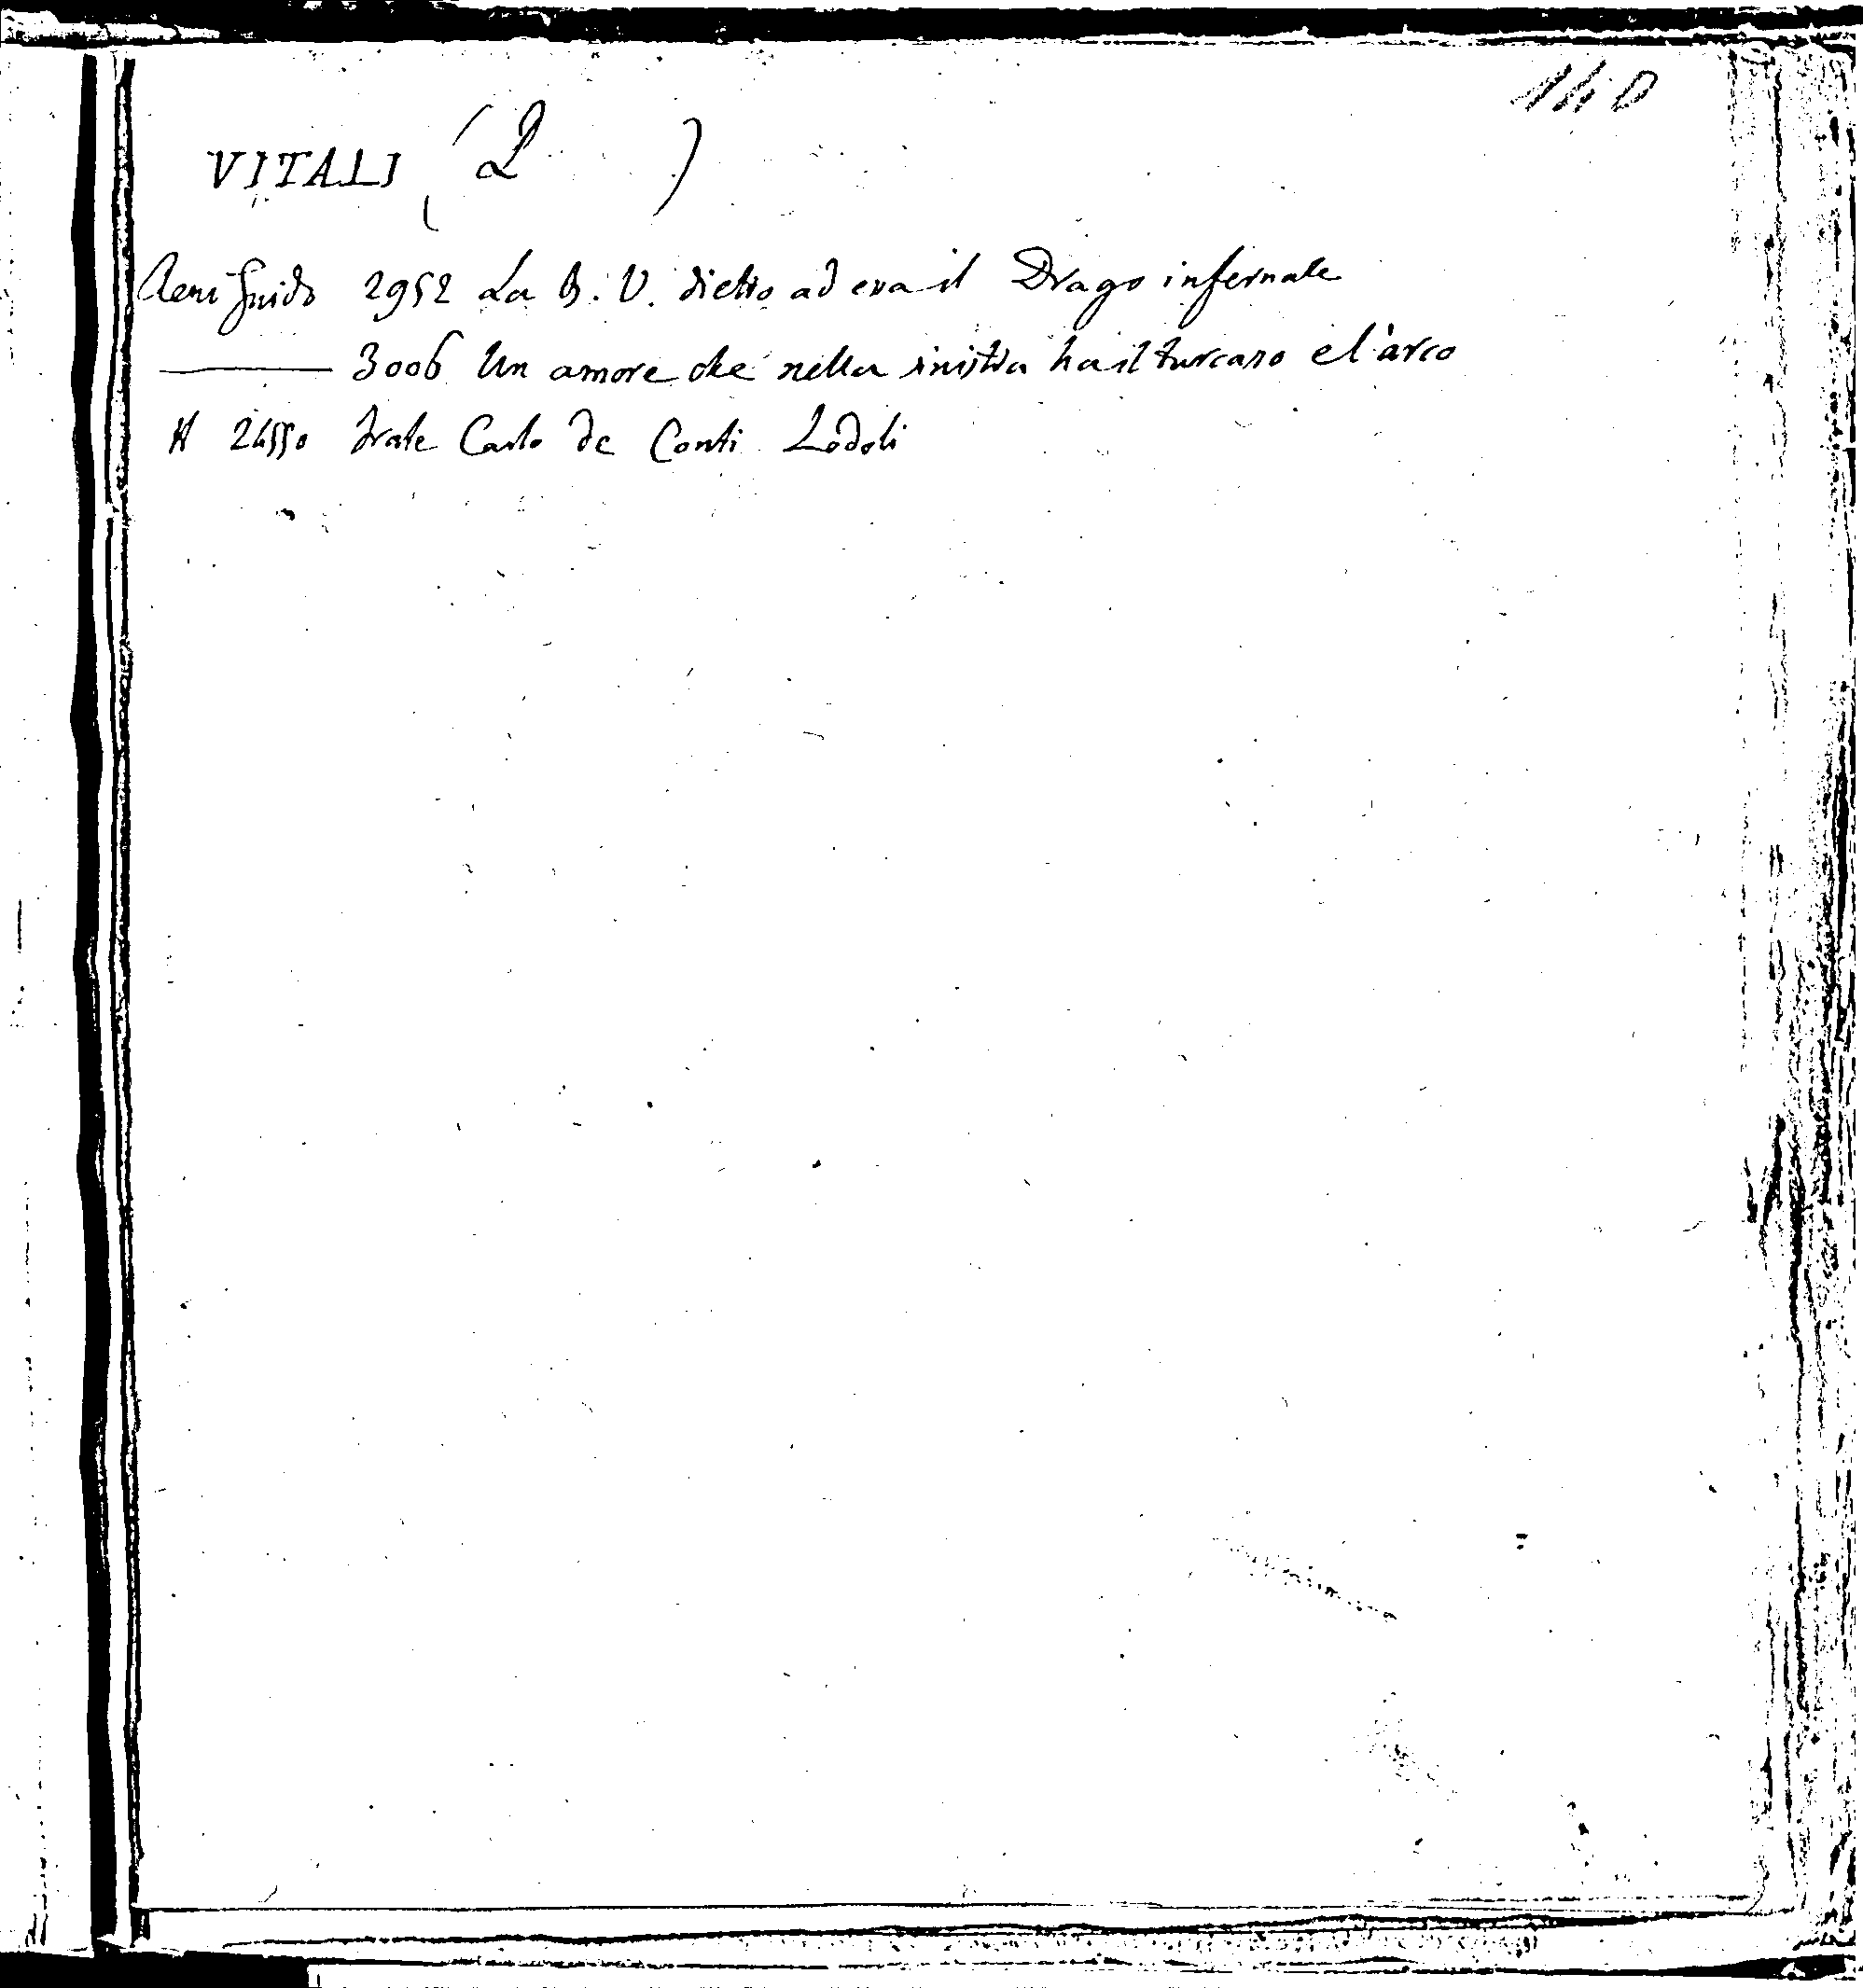 140
VITALI (P )
Reni Guido 2952 La B. V. dietro ad essa il Drago infernale
——— 3006 Un amore che nella sinistra ha il turcaso e l'arco
H 24550 frate Carlo de Conti Lodoli